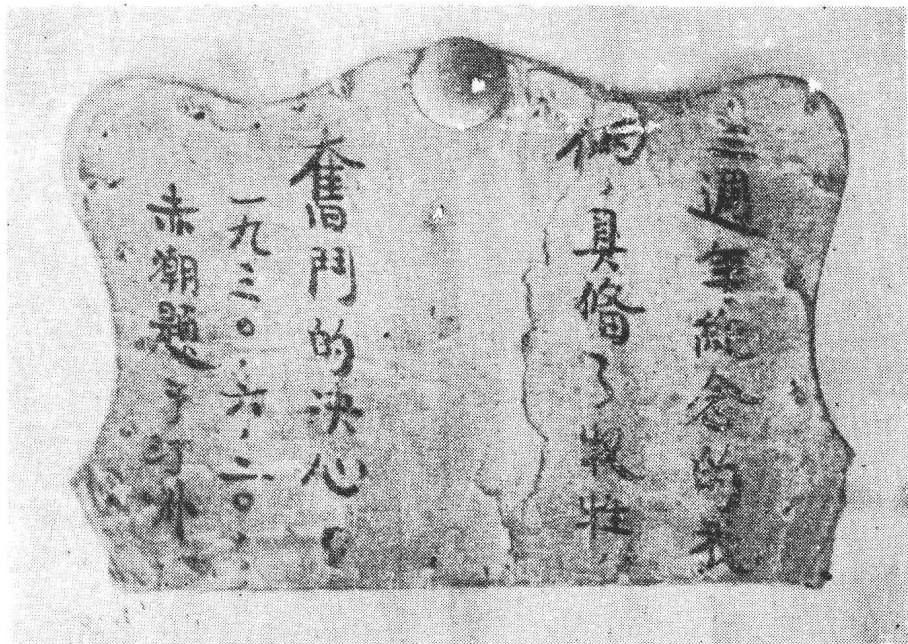 三週年紀念的我
們，具俻了牧牲
奮鬥的决心。
一九三〇.六.二〇.
赤潮題于汀州